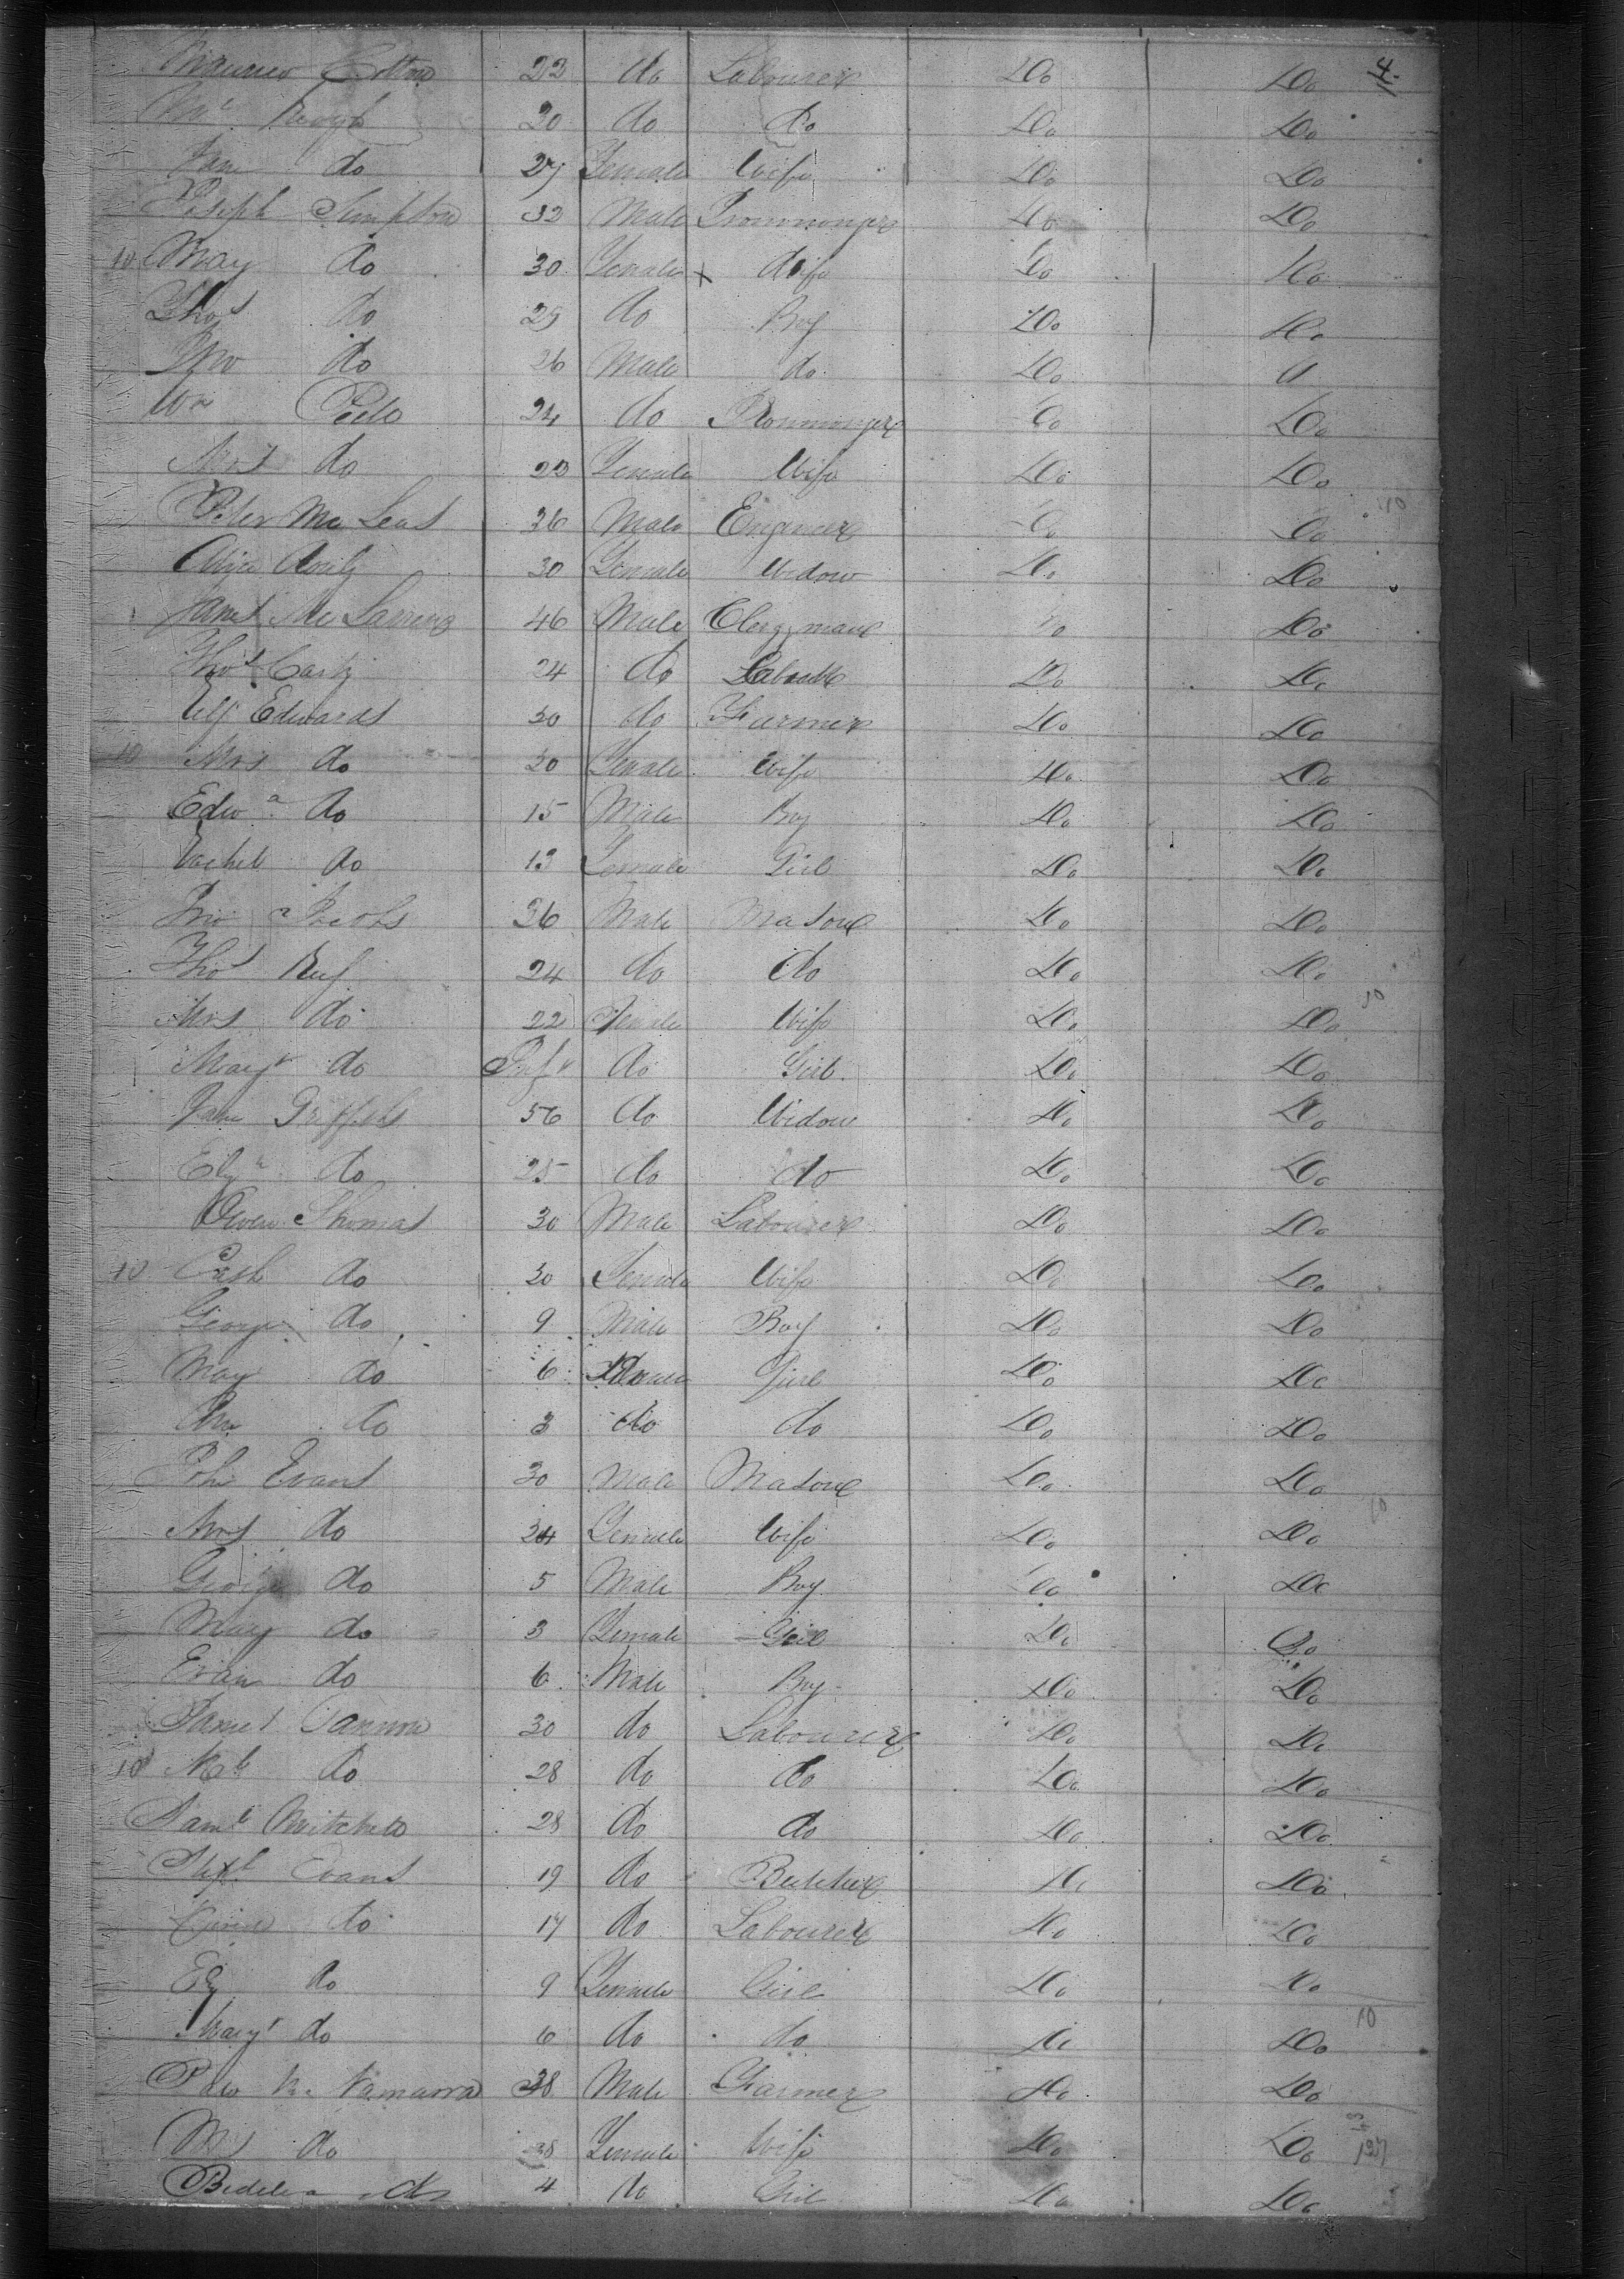 4.
Maurice Cotton 22 do Labourer Do Do
Mc Keogh 20 do do Do Do
Jane do 27 Female Wife Do Do
Joseph Simpson 32 Male Ironmonger Do Do
10 Mary do 30 Female x Wife Do Do
Thos do 29 do Boy Do Do
Jno do 26 Male do Do
Wm Peele 24 do Ironmonger Do Do
Mrs do 20 Female Wife Do Do
Peter Mc Leas 36 Male Engineer Do Do 10
Alice 30 Female Widow Do Do
James Mc Larren 46 Male Clergyman Do Do
Thos Carty 24 do Do Do
Edwards 30 do Farmer Do Do
10 Mrs do 30 Female Wife Do Do
Edwd do 15 Male Boy Do Do
Rachel do 13 Female Girl Do Do
Jno Jacobs 36 Male Mason Do Do
Thos 24 do do Do Do
Mrs do 22 Female Wife Do Do 10
Mary do Inft do Girl Do Do
Jane Griffiths 56 do Widow Do Do
Elizh do 25 do do Do Do
Owen Thomas 30 Male Labourer Do Do
10 Cath do 30 Female Wife Do Do
George do 9 Male Boy Do Do
Mary do 6 Female Girl Do Do
do 3 do do Do Do
John Evans 30 Male Mason Do Do 10
Mrs do 24 Female Wife Do Do
George do 5 Male Boy Do Do
Mary do 3 Female Girl Do Do
Evan do 6 Male Boy Do Do
James 30 do Labourer Do Do
10 do 28 do do Do Do
Saml Mitchell 28 do do Do Do
Evans 19 do Butcher Do Do
do 17 do Labourer Do Do
Eliz do 9 Female Girl Do Do
Mary do 6 do do Do Do 10
Mc Namarra 38 Male Farmer Do Do
Mrs do 38 Female Wife Do Do 127
Bedelia do 4 do Girl Do Do